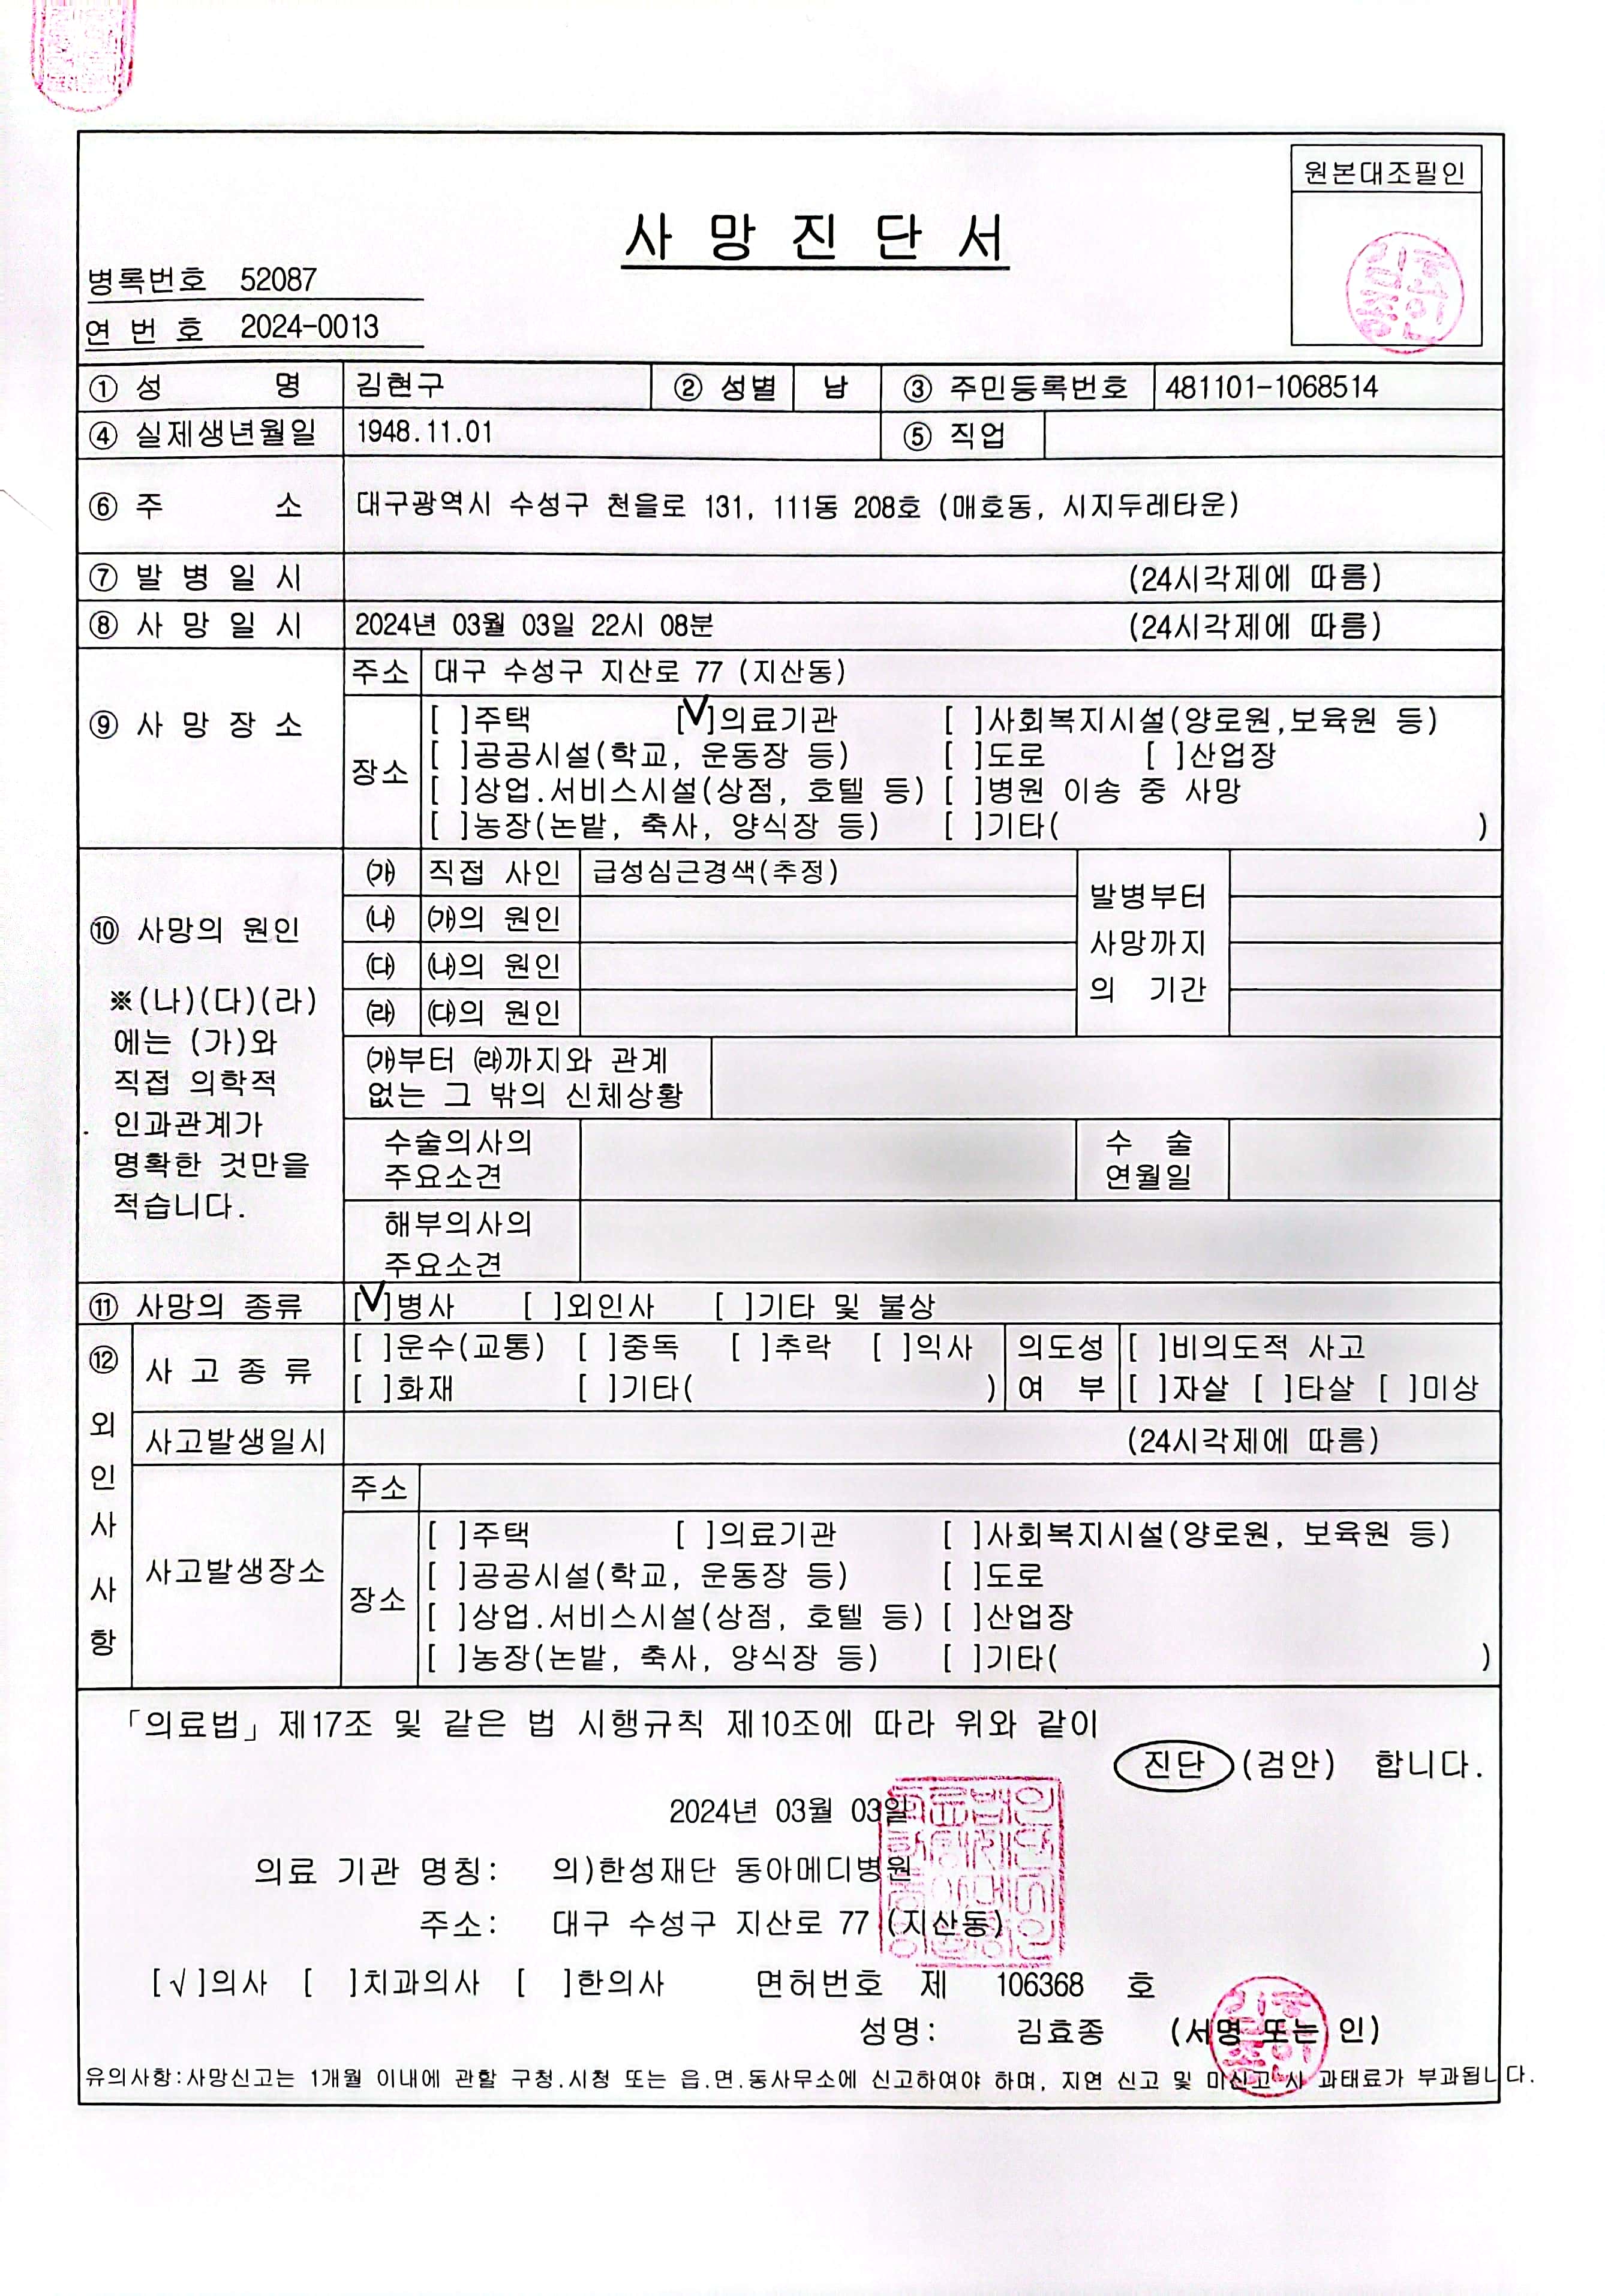 원본대조필인
사 망 진 단 서
병록번호 52087
연 번 호 2024-0013
① 성 명 김현구 ② 성별 남 ③ 주민등록번호 481101-1068514
④ 실제생년월일 1948.11.01 ⑤ 직업
⑥ 주 소 대구광역시 수성구 천을로 131, 111동 208호 (매호동, 시지두레타운)
⑦ 발 병 일 시 (24시각제에 따름)
⑧ 사 망 일 시 2024년 03월 03일 22시 08분 (24시각제에 따름)
⑨ 사 망 장 소 주소 대구 수성구 지산로 77 (지산동)
장소 [ ]주택 [V]의료기관 [ ]사회복지시설(양로원,보육원 등)
[ ]공공시설(학교, 운동장 등) [ ]도로 [ ]산업장
[ ]상업.서비스시설(상점, 호텔 등) [ ]병원 이송 중 사망
[ ]농장(논밭, 축사, 양식장 등) [ ]기타( )
⑩ 사망의 원인
※(나)(다)(라)
에는 (가)와
직접 의학적
인과관계가
명확한 것만을
적습니다.
㈎ 직접 사인 급성심근경색(추정)
㈏ ㈎의 원인
㈐ ㈏의 원인
㈑ ㈐의 원인
발병부터
사망까지
의 기간
㈎부터 ㈑까지와 관계
없는 그 밖의 신체상황
수술의사의
주요소견
수 술
연월일
해부의사의
주요소견
⑪ 사망의 종류 [V]병사 [ ]외인사 [ ]기타 및 불상
⑫ 외 인 사 사 항
사 고 종 류 [ ]운수(교통) [ ]중독 [ ]추락 [ ]익사
[ ]화재 [ ]기타( )
의도성 [ ]비의도적 사고
여 부 [ ]자살 [ ]타살 [ ]미상
사고발생일시 (24시각제에 따름)
사고발생장소 주소
장소 [ ]주택 [ ]의료기관 [ ]사회복지시설(양로원, 보육원 등)
[ ]공공시설(학교, 운동장 등) [ ]도로
[ ]상업.서비스시설(상점, 호텔 등) [ ]산업장
[ ]농장(논밭, 축사, 양식장 등) [ ]기타( )
「의료법」제17조 및 같은 법 시행규칙 제10조에 따라 위와 같이
진단 (검안) 합니다.
2024년 03월 03일
의료 기관 명칭: 의)한성재단 동아메디병원
주소: 대구 수성구 지산로 77 (지산동)
[√]의사 [ ]치과의사 [ ]한의사 면허번호 제 106368 호
성명: 김효종 (서명 또는 인)
유의사항:사망신고는 1개월 이내에 관할 구청.시청 또는 읍.면.동사무소에 신고하여야 하며, 지연 신고 및 미신고 시 과태료가 부과됩니다.